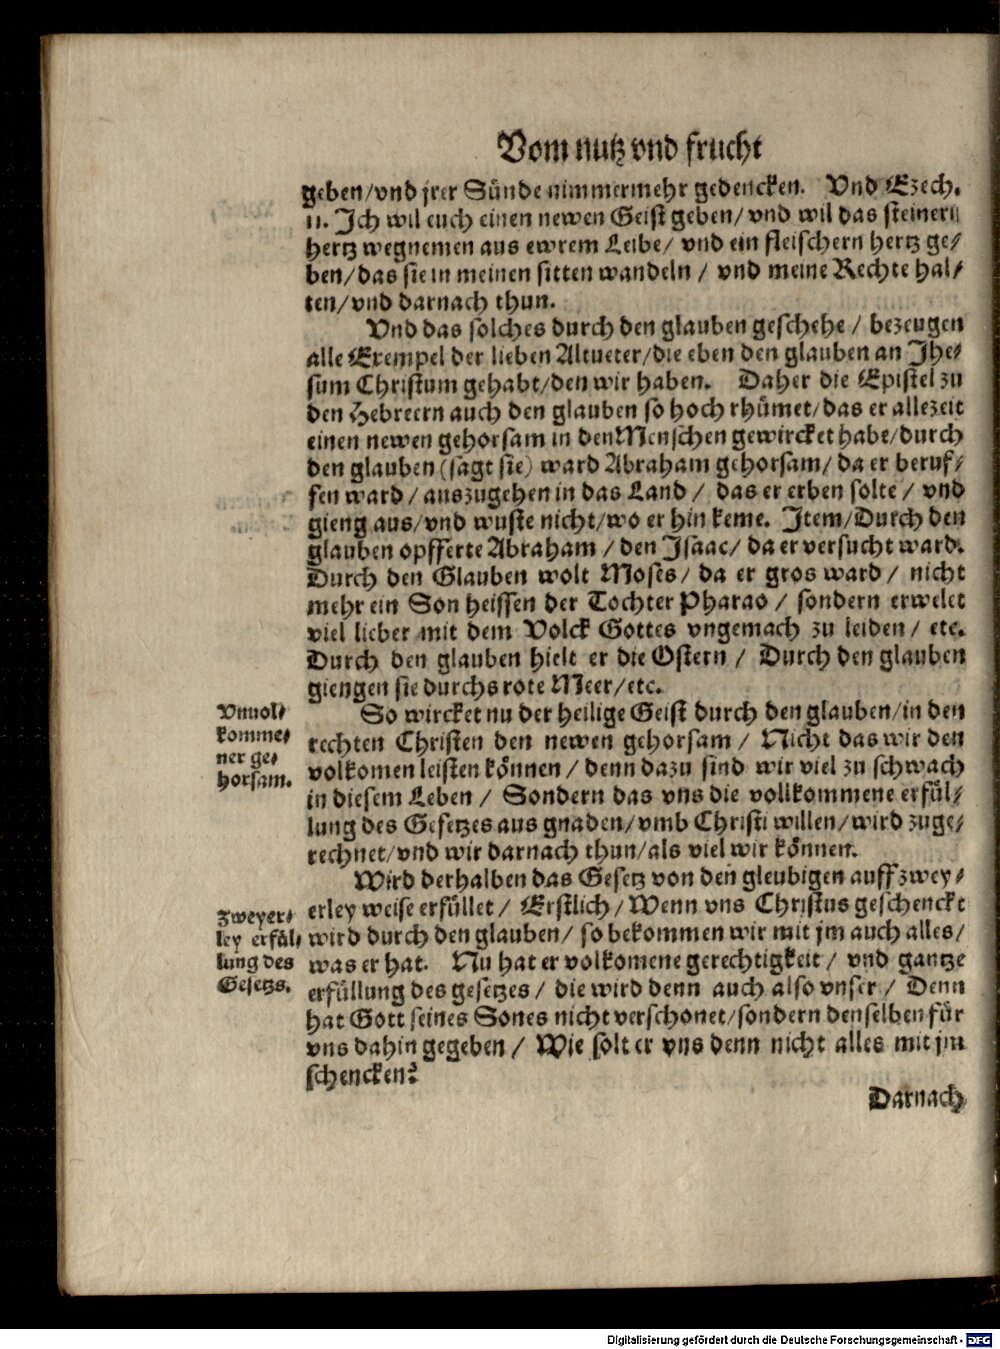 Vom nutz vnd frucht
geben/vnd jrer Sünde nimmermehr gedencken. Vnd Ezech.
11. Ich wil euch einen newen Geist geben/ vnd wil das steinern
hertz wegnemen aus ewrem Leibe/ vnd ein fleischern hertz ge/
ben/das sie in meinen sitten wandeln / vnd meine Rechte hal/
ten/vnd darnach thun.
Vnd das solches durch den glauben geschehe / bezeugen
alle Exempel der lieben Altueter/die eben den glauben an Jhe/
sum Christum gehabt/den wir haben. Daher die Epistel zu
den Hebreern auch den glauben so hoch rhümet/das er allezeit
einen newen gehorsam in den Menschen gewircket habe/durch
den glauben (sagt sie) ward Abraham gehorsam/ da er beruf/
fen ward / auszugehen in das Land / das er erben solte / vnd
gieng aus/vnd wuste nicht/wo er hin keme. Item/Durch den
glauben opfferte Abraham / den Isaac/ da er versucht ward.
Durch den Glauben wolt Moses/ da er gros ward / nicht
mehr ein Son heissen der Tochter Pharao / sondern erwelet
viel lieber mit dem Volck Gottes vngemach zu leiden / etc.
Durch den glauben hielt er die Ostern / Durch den glauben
giengen sie durchs rote Meer/etc.
Vnuol/
komme/
ner ge/
horsam.
So wircket nu der heilige Geist durch den glauben/in den
rechten Christen den newen gehorsam / Nicht das wir den
volkomen leisten können / denn dazu sind wir viel zu schwach
in diesem Leben / Sondern das vns die vollkommene erfül/
lung des Gesetzes aus gnaden/vmb Christi willen/wird zuge/
rechnet/vnd wir darnach thun/als viel wir können.
Wird derhalben das Gesetz von den gleubigen auff zwey/
Zweyer/
ley erfül/
lung des
Gesetzs.
erley weise erfüllet / Erstlich / Wenn vns Christus geschenckt
wird durch den glauben/ so bekommen wir mit jm auch alles/
was er hat. Nu hat er volkomene gerechtigkeit / vnd gantze
erfüllung des gesetzes / die wird denn auch also vnser / Denn
hat Gott seines Sones nicht verschonet/sondern denselben für
vns dahin gegeben / Wie solt er vns denn nicht alles mit jm
schencken?
Darnach
Digitalisierung gefördert durch die Deutsche Forschungsgemeinschaft - DFG